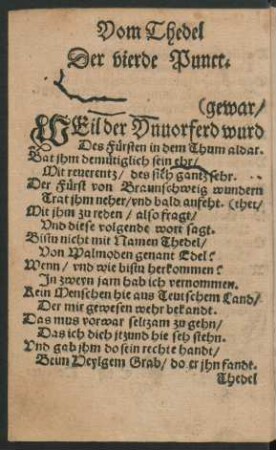 Vom Thedel
Der vierde Punct.
(gewar/
WEil der Vnuorferd wurd
Des Fürsten in dem Thum aldar.
Bat jhm demütiglich sein ehr/
Mit reuerentz/ des sich gantz sehr.
Der Fürst von Braunschweig wundern
Trat jhm neher/ vnd bald anfeht. (thet/
Mit jhm zu reden/ also fragt/
Vnd diese volgende wort sagt.
Bistu nicht mit Namen Thedel/
Von Walmoden genant Edel?
Wenn/ vnd wie bistu herkommen?
In zweyn jarn hab ich vernommen.
Kein Menschen hie aus Teutschem Land/
Der mir gewesen wehr bekandt.
Das mus vorwar seltzam zu gehn/
Das ich dich jetzund hie seh stehn.
Vnd gab jhm do sein rechte handt/
Beim Heylgem Grab/ do er jhn fandt.
Thedel